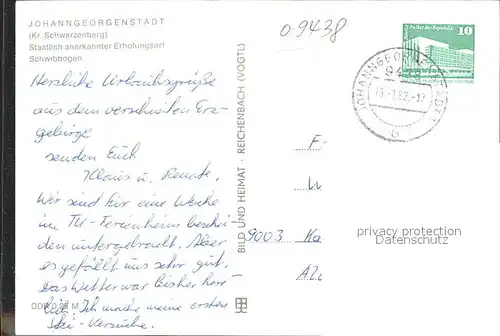 JOHANNGEORGENSTADT
(Kr. Schwarzenberg)
Staatlich anerkannter Erholungsort
Schwibbogen
0.9438
Herzliche Urlaubsgrüße
aus dem verschneiten Erz-
gebirge
senden Euch
Klaus u. Renate.
Wir sind für eine Woche
im TU-Ferienheim beschei-
den untergebracht. Aber
es gefällt uns sehr gut.
Das Wetter war bisher herr-
lich. Ich mache meine ersten
Ski-Versuche.
DDR 0,25 M
BILD UND HEIMAT · REICHENBACH (VOGTL)
Palast der Republik
10
JOHANNGEORGENSTADT
b
9003 Ka
privacy protection
Datenschutz